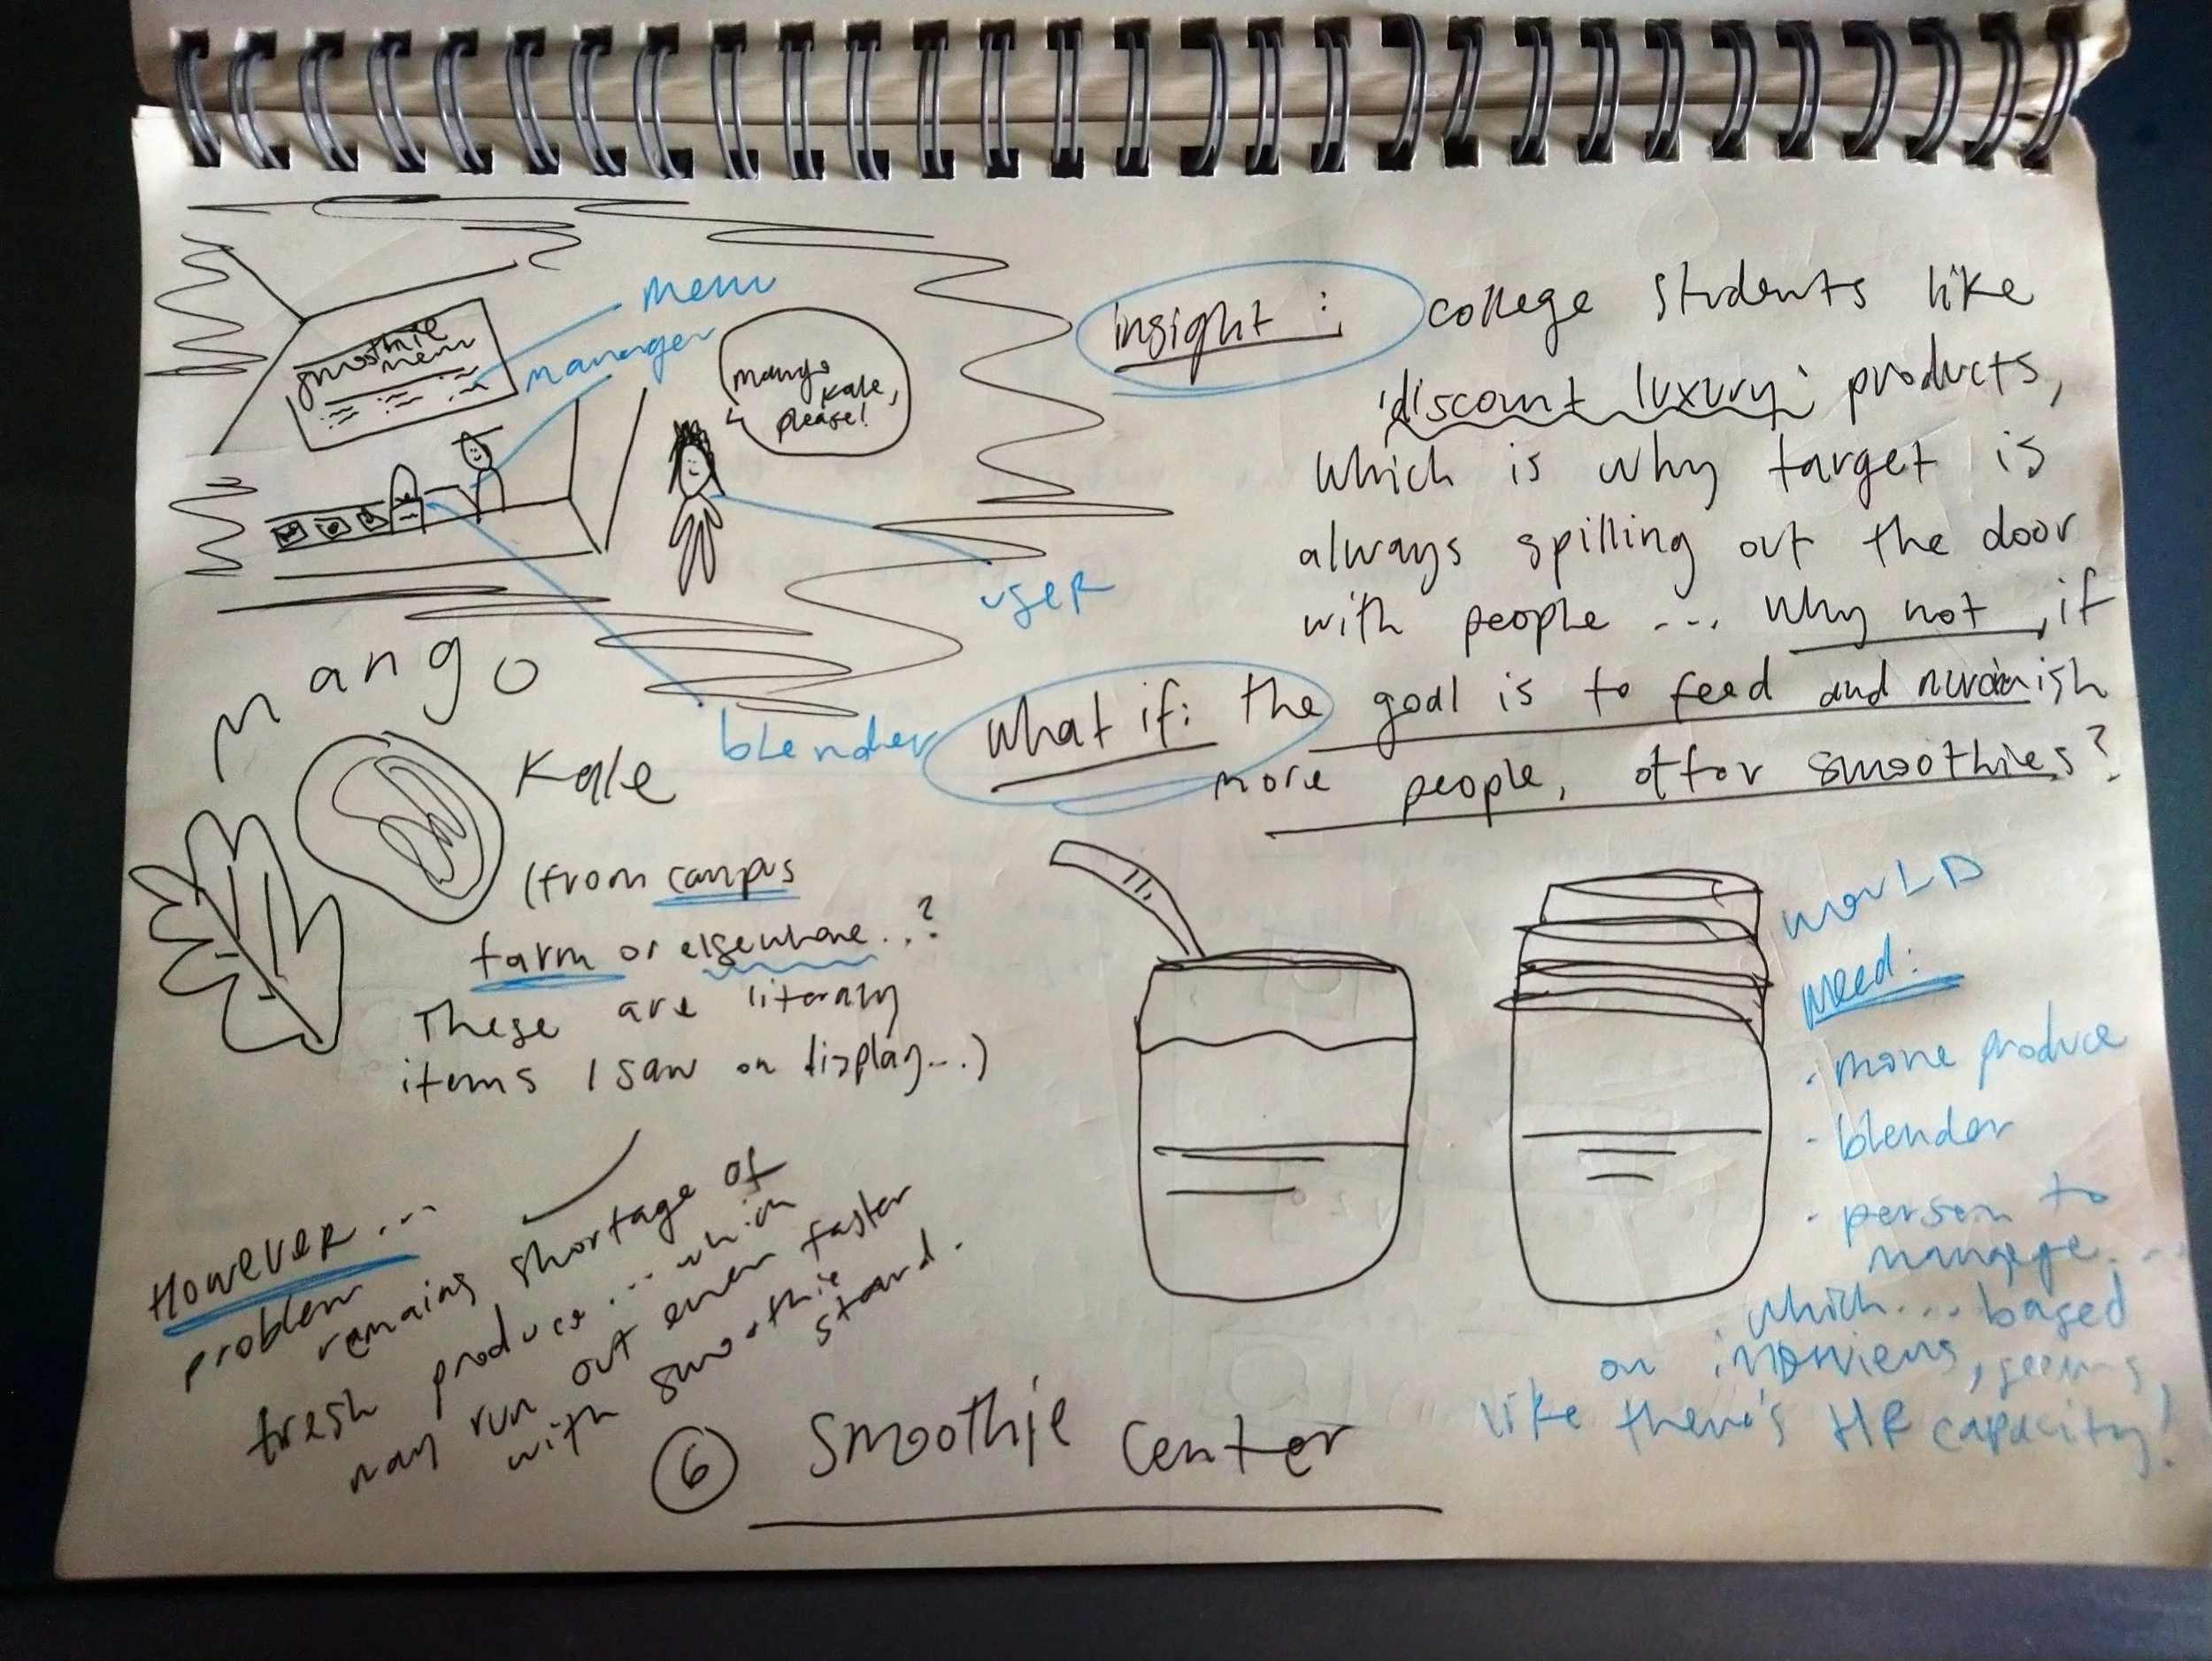 smoothie
menu
menu
manager
mango
kale,
please!
user
blender
insight: college students like
'discount luxury' products,
which is why target is
always spilling out the door
with people ... why not, if
what if: the goal is to feed and nurish
more people, offor smoothies?
Mango
Kale
(from campus
farm or elsewhere..?
These are literally
items I saw on display...)
However...
problem
remains shortage of
fresh produce... which
may run out even faster
with smoothie
stand.
world
need:
- more produce
- blender
- person to
manage...
which... based
on interviews, seems
like there's HR capacity!
6 Smoothie Center